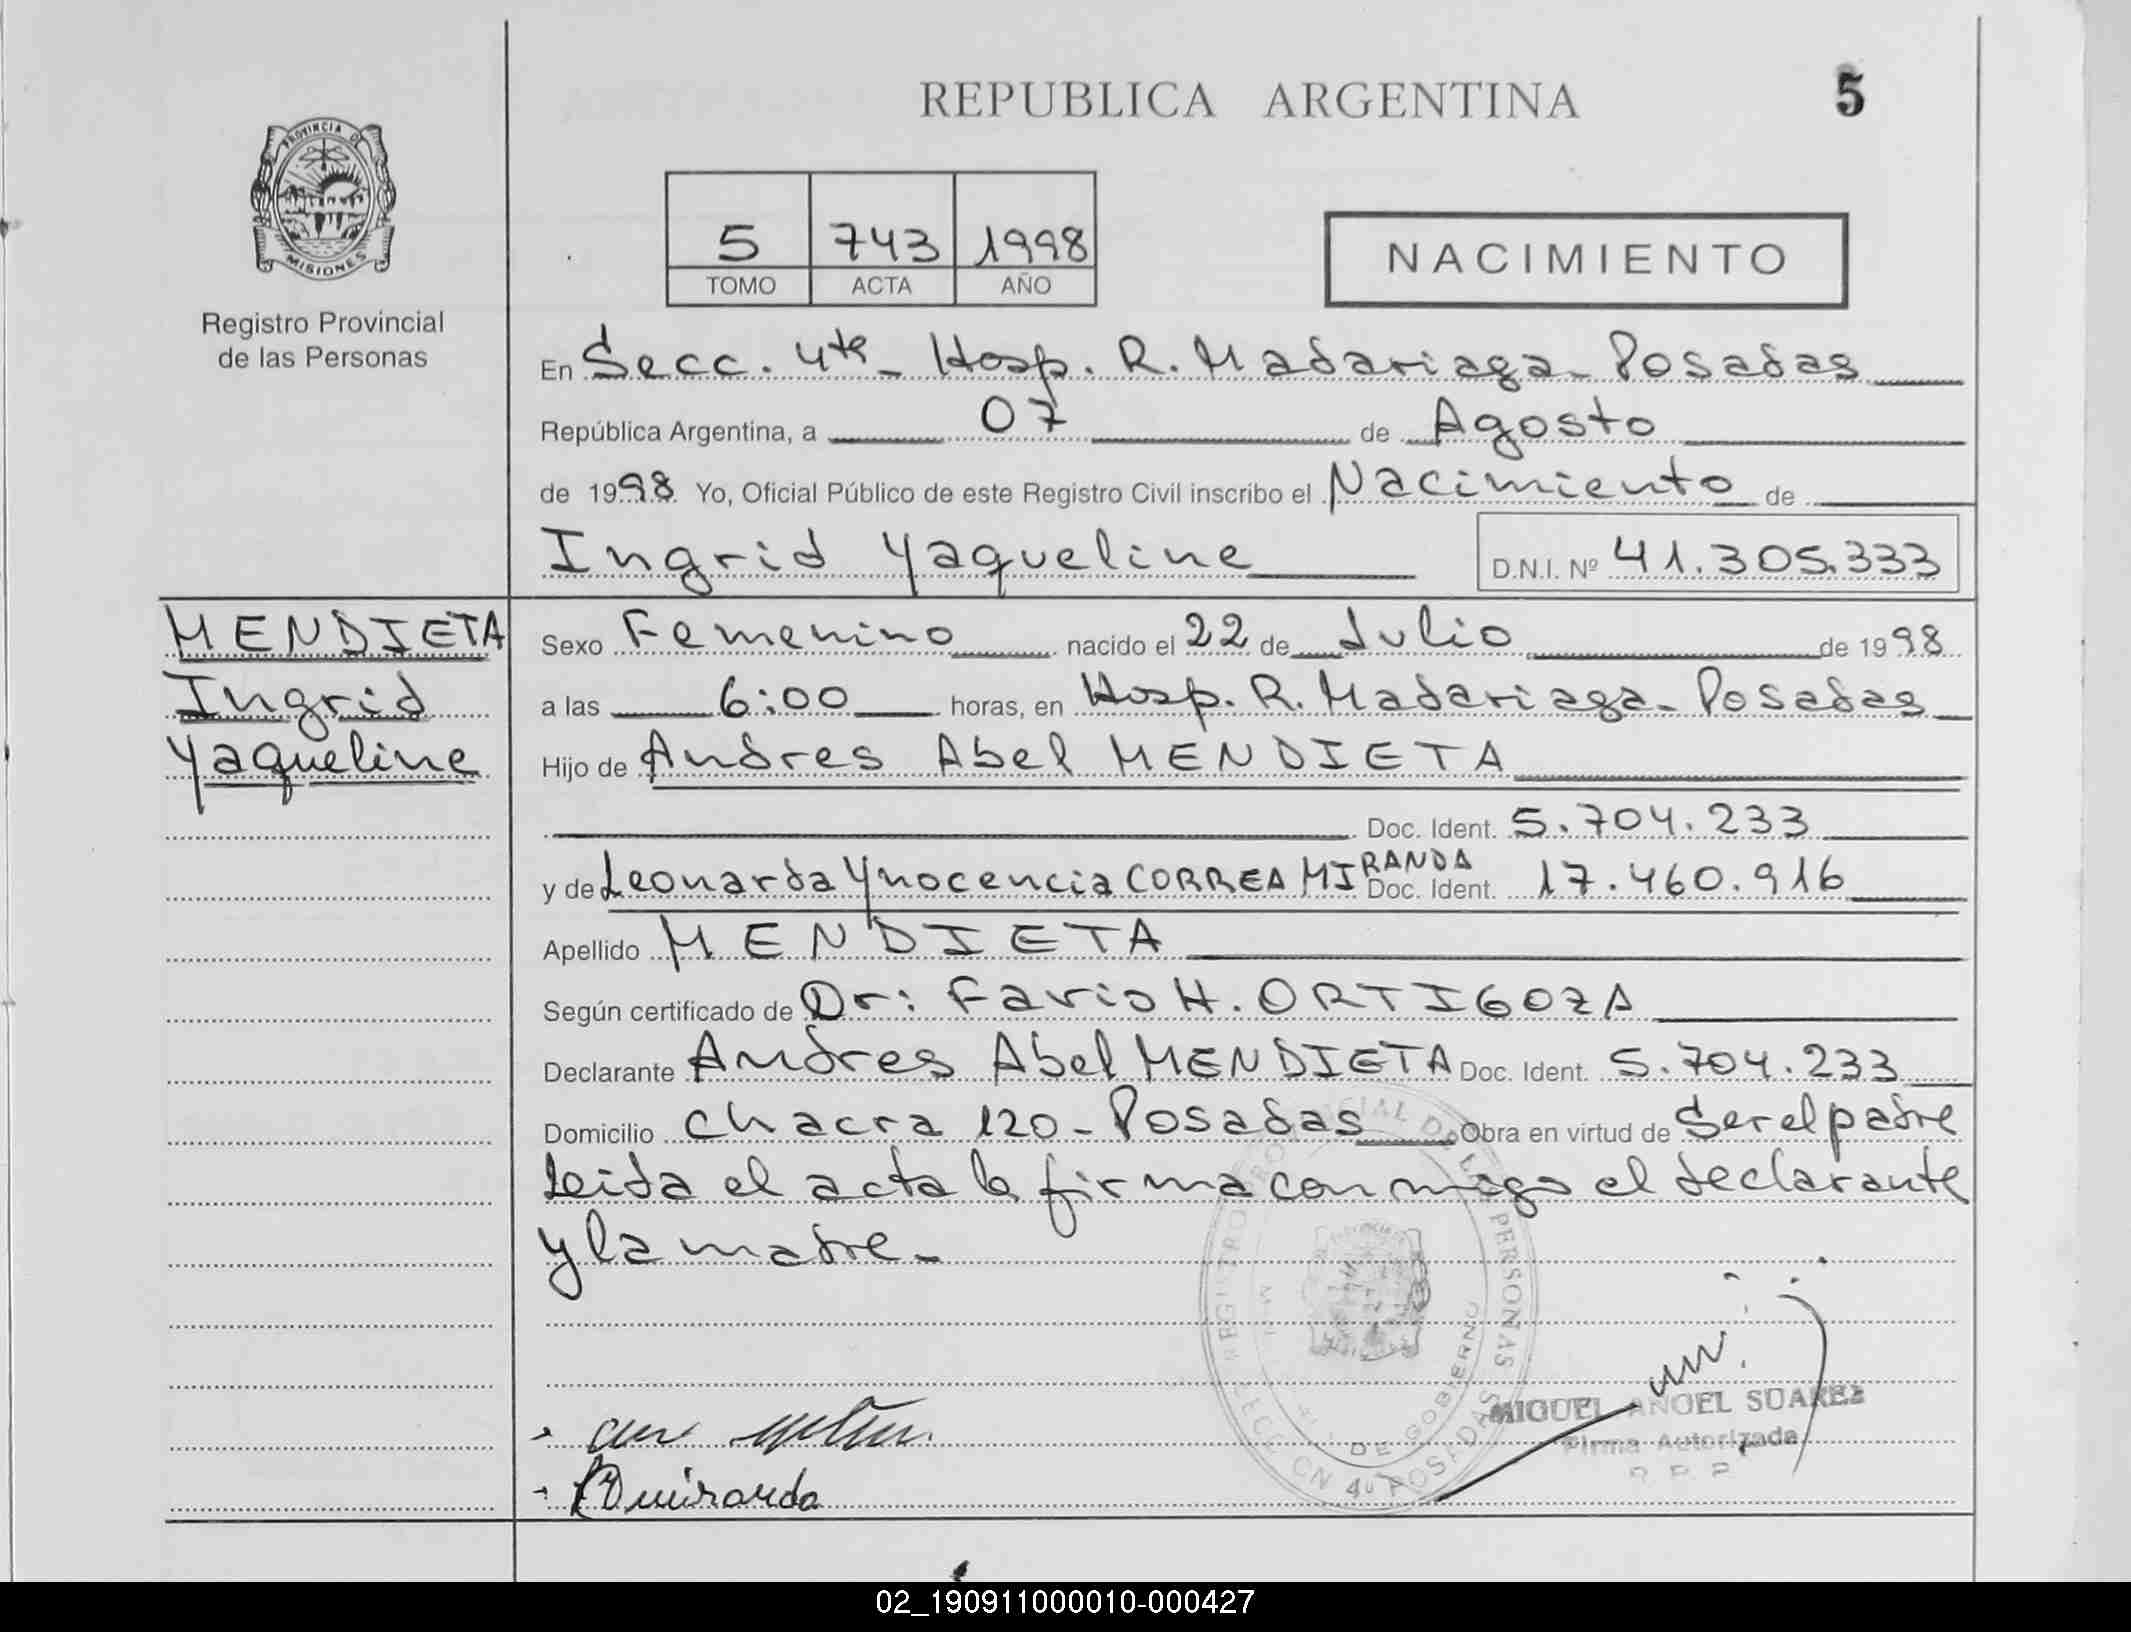 REPUBLICA ARGENTINA 5
PROVINCIA DE
MISIONES
Registro Provincial
de las Personas
5 743 1998
TOMO ACTA AÑO
NACIMIENTO
En Secc. 4ta_ Hosp. R. Madariaga_ Posadas
República Argentina, a 07 de Agosto
de 1998 Yo, Oficial Público de este Registro Civil inscribo el Nacimiento de
Ingrid Yaqueline D.N.I. Nº 41.305.333
MENDIETA
Ingrid
Yaqueline
Sexo Femenino nacido el 22 de Julio de 1998
a las 6:00 horas, en Hosp. R. Madariaga_ Posadas
Hijo de Andres Abel MENDIETA
Doc. Ident. 5.704.233
y de Leonarda Ynocencia CORREA MIRANDA Doc. Ident. 17.460.916
Apellido MENDIETA
Según certificado de Dr: Favio H. ORTIGOZA
Declarante Andres Abel MENDIETA Doc. Ident. 5.704.233
Domicilio Chacra 120_ Posadas Obra en virtud de Ser el padre
Leida el acta la firma conmigo el declarante
y la madre_
REGISTRO PROVINCIAL DE LAS PERSONAS
DE GOBIERNO
SECCION 4a POSADAS
MIGUEL ANGEL SUAREZ
Firma Autorizada
R. P. P.
miranda
02_190911000010-000427